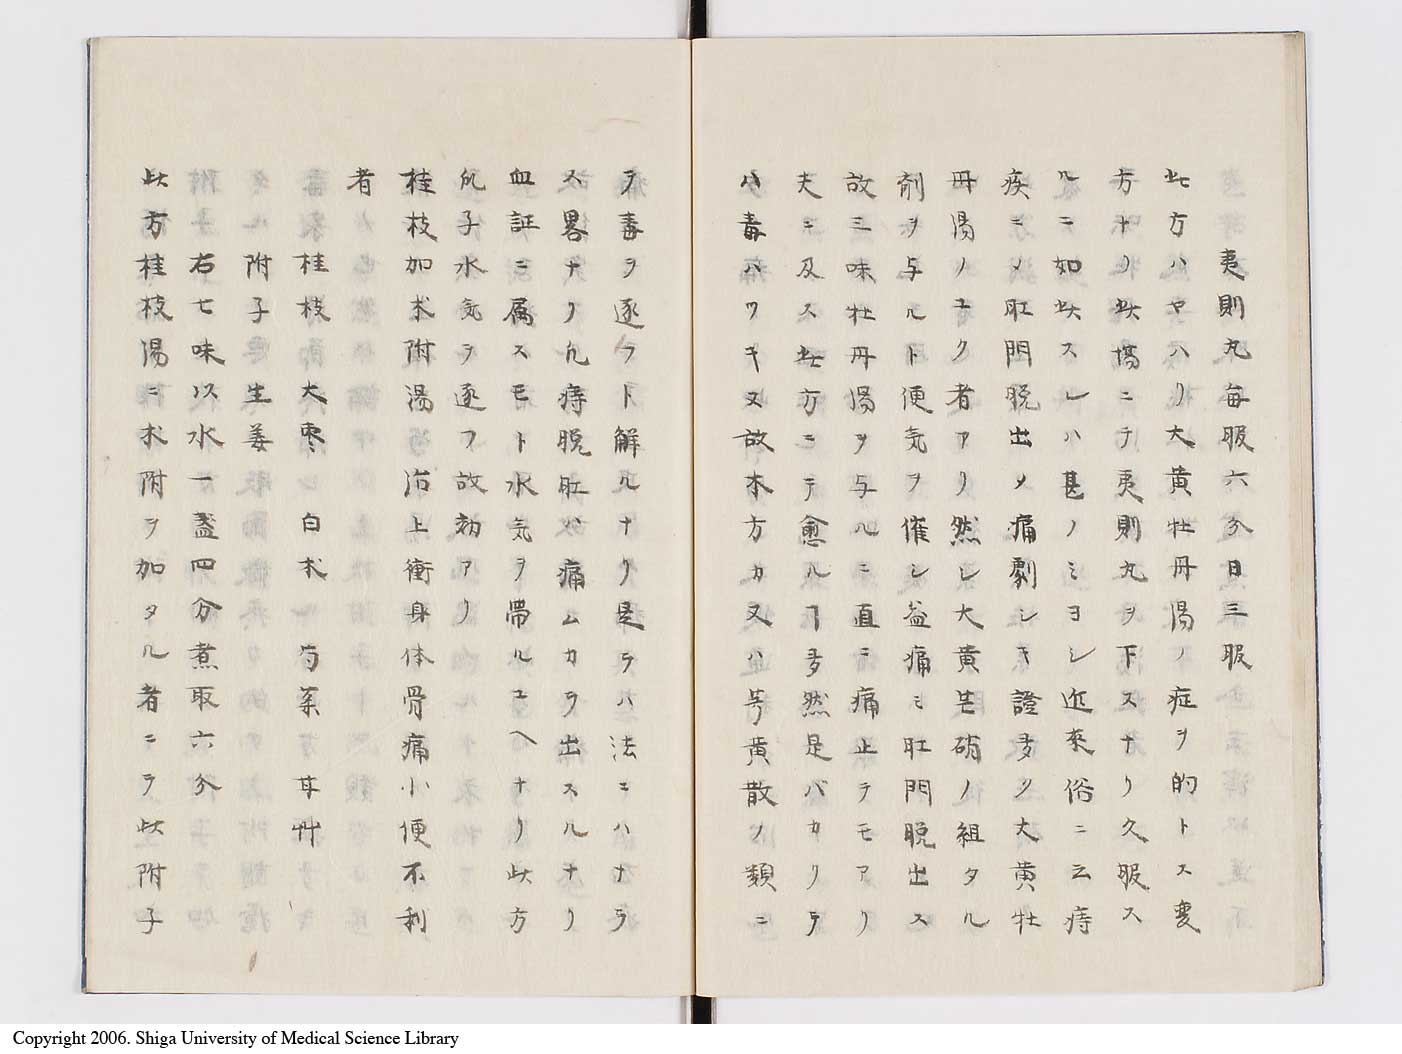 夷則丸毎服六分日三服
此方ハヤハリ大黄牡丹湯ノ症ヲ的トス変
方ナリ此湯ニテ夷則丸ヲ下スナリ久服ス
ルニ如此スレハ甚ノミヨシ近来俗ニ云痔
疾ニメ肛門脱出ノ痛劇シキ證多ク大黄牡
丹湯ノユク者アリ然レ大黄芒硝ノ組タル
剤ヲ与ルト便気ヲ催シ益痛ミ肛門脱出ス
故三味牡丹湯ヲ与ルニ直ニ痛止ラモアリ
夫ニ及ス此方ニテ愈ルヿ多然是バカリテ
ハ毒ハワキ又故本方カ又ハ芎黄散ノ類ニ
ヲ毒ヲ逐フト解ルナリ是ラハ法ニハナラ
ス畧ナリ凡痔脱肛ハ痛ムカラ出スルナリ
血証ニ属スモト水気ヲ帯ルユヘナリ此方
瓜子水気ヲ逐フ故効アリ
桂枝加朮附湯治上衝身体骨痛小便不利
者
桂枝 大棗 白朮 芍薬 甘艸
附子 生姜
右七味以水一盞四分煮取六分
此方桂枝湯ニ朮附ヲ加タル者ニテ此附子
Copyright 2006. Shiga University of Medical Science Library